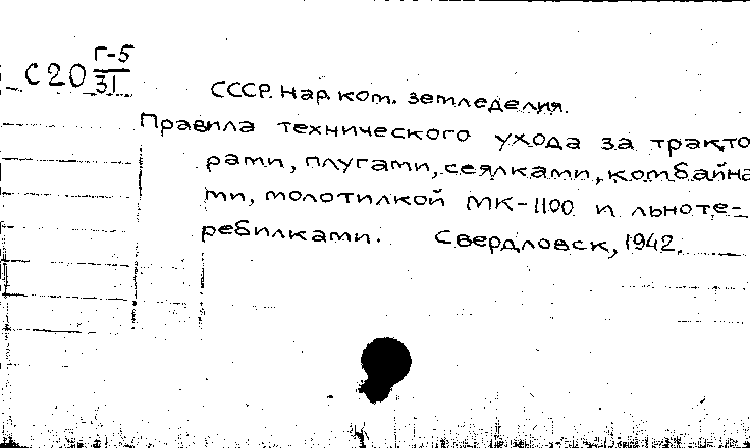 С20 Г-5/31
СССР. Нар. ком. земледелия.
Правила технического ухода за тракто
рами, плугами, сеялками, комбайна
ми, молотилкой МК-1100 и льноте-
ребилками. Свердловск, 1942.